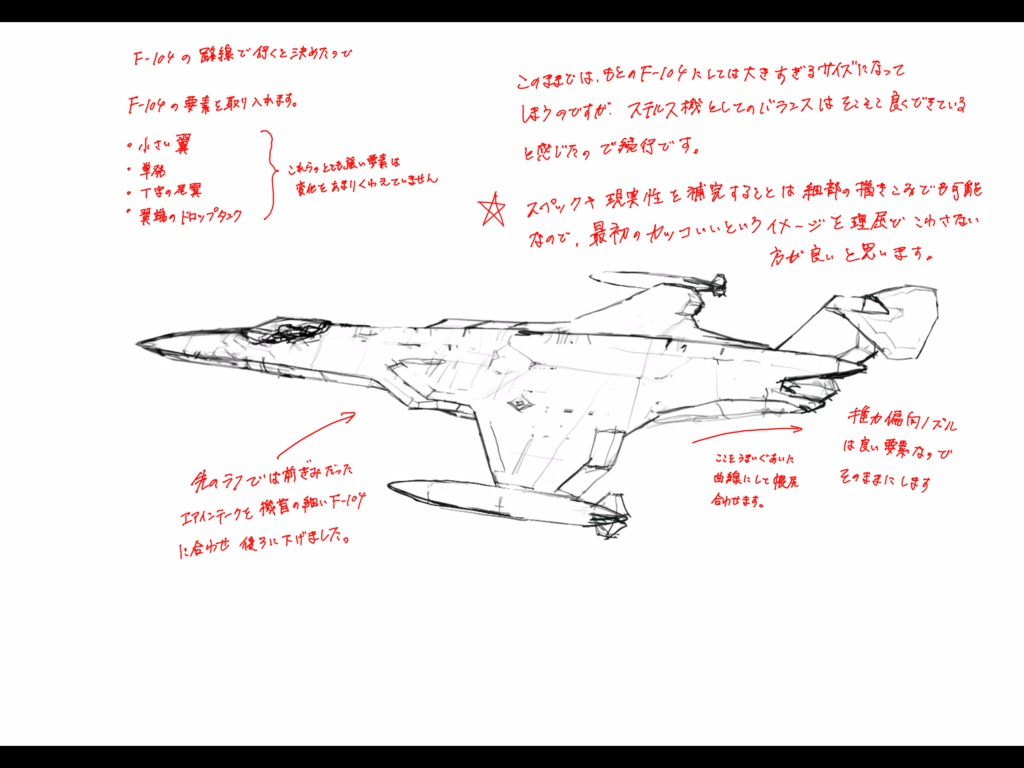 F-104の路線で行くと決めたので
F-104の要素を取り入れます。
・小さい翼
・単発
・T字の尾翼
・翼端のドロップタンク
これらのとても強い要素は
変化をあまりくわえていません
このままでは、もとのF-104にしては大きすぎるサイズになって
しまうのですが、ステルス機としてのバランスはそこそこ良くできている
と感じたので続行です。
☆ スペックや現実性を補完することは細部の描きこみでも可能
なので、最初のカッコいいというイメージを理屈でこわさない
方が良いと思います。
先のラフでは前ぎみだった
エアインテークを機首の細いF-104
に合わせ後ろに下げました。
ここをうまいぐあいに
曲線にして帳尻
合わせます。
推力偏向ノズル
は良い要素なので
そのままにします